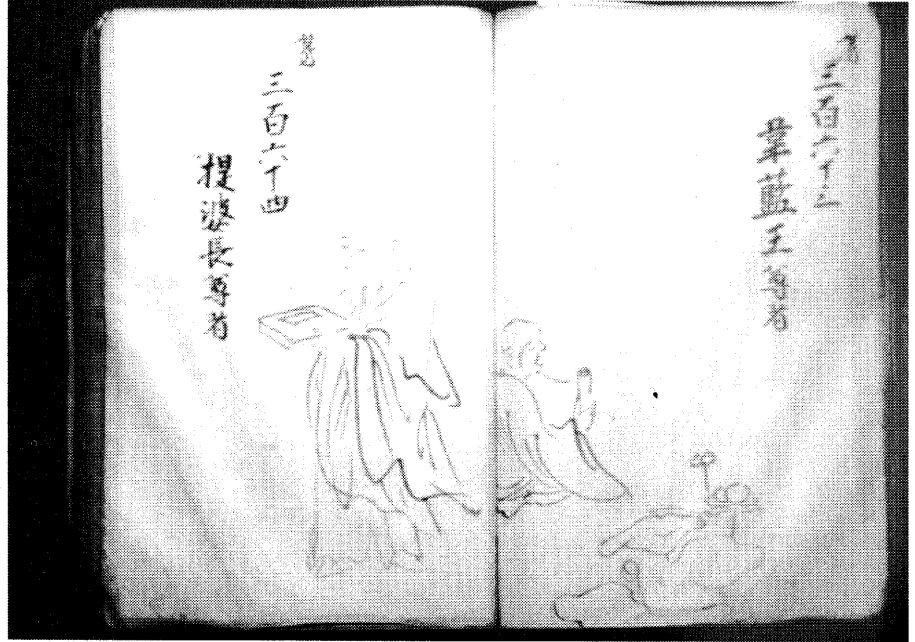 三百六十三
韋藍王尊者
三百六十四
提婆長尊者